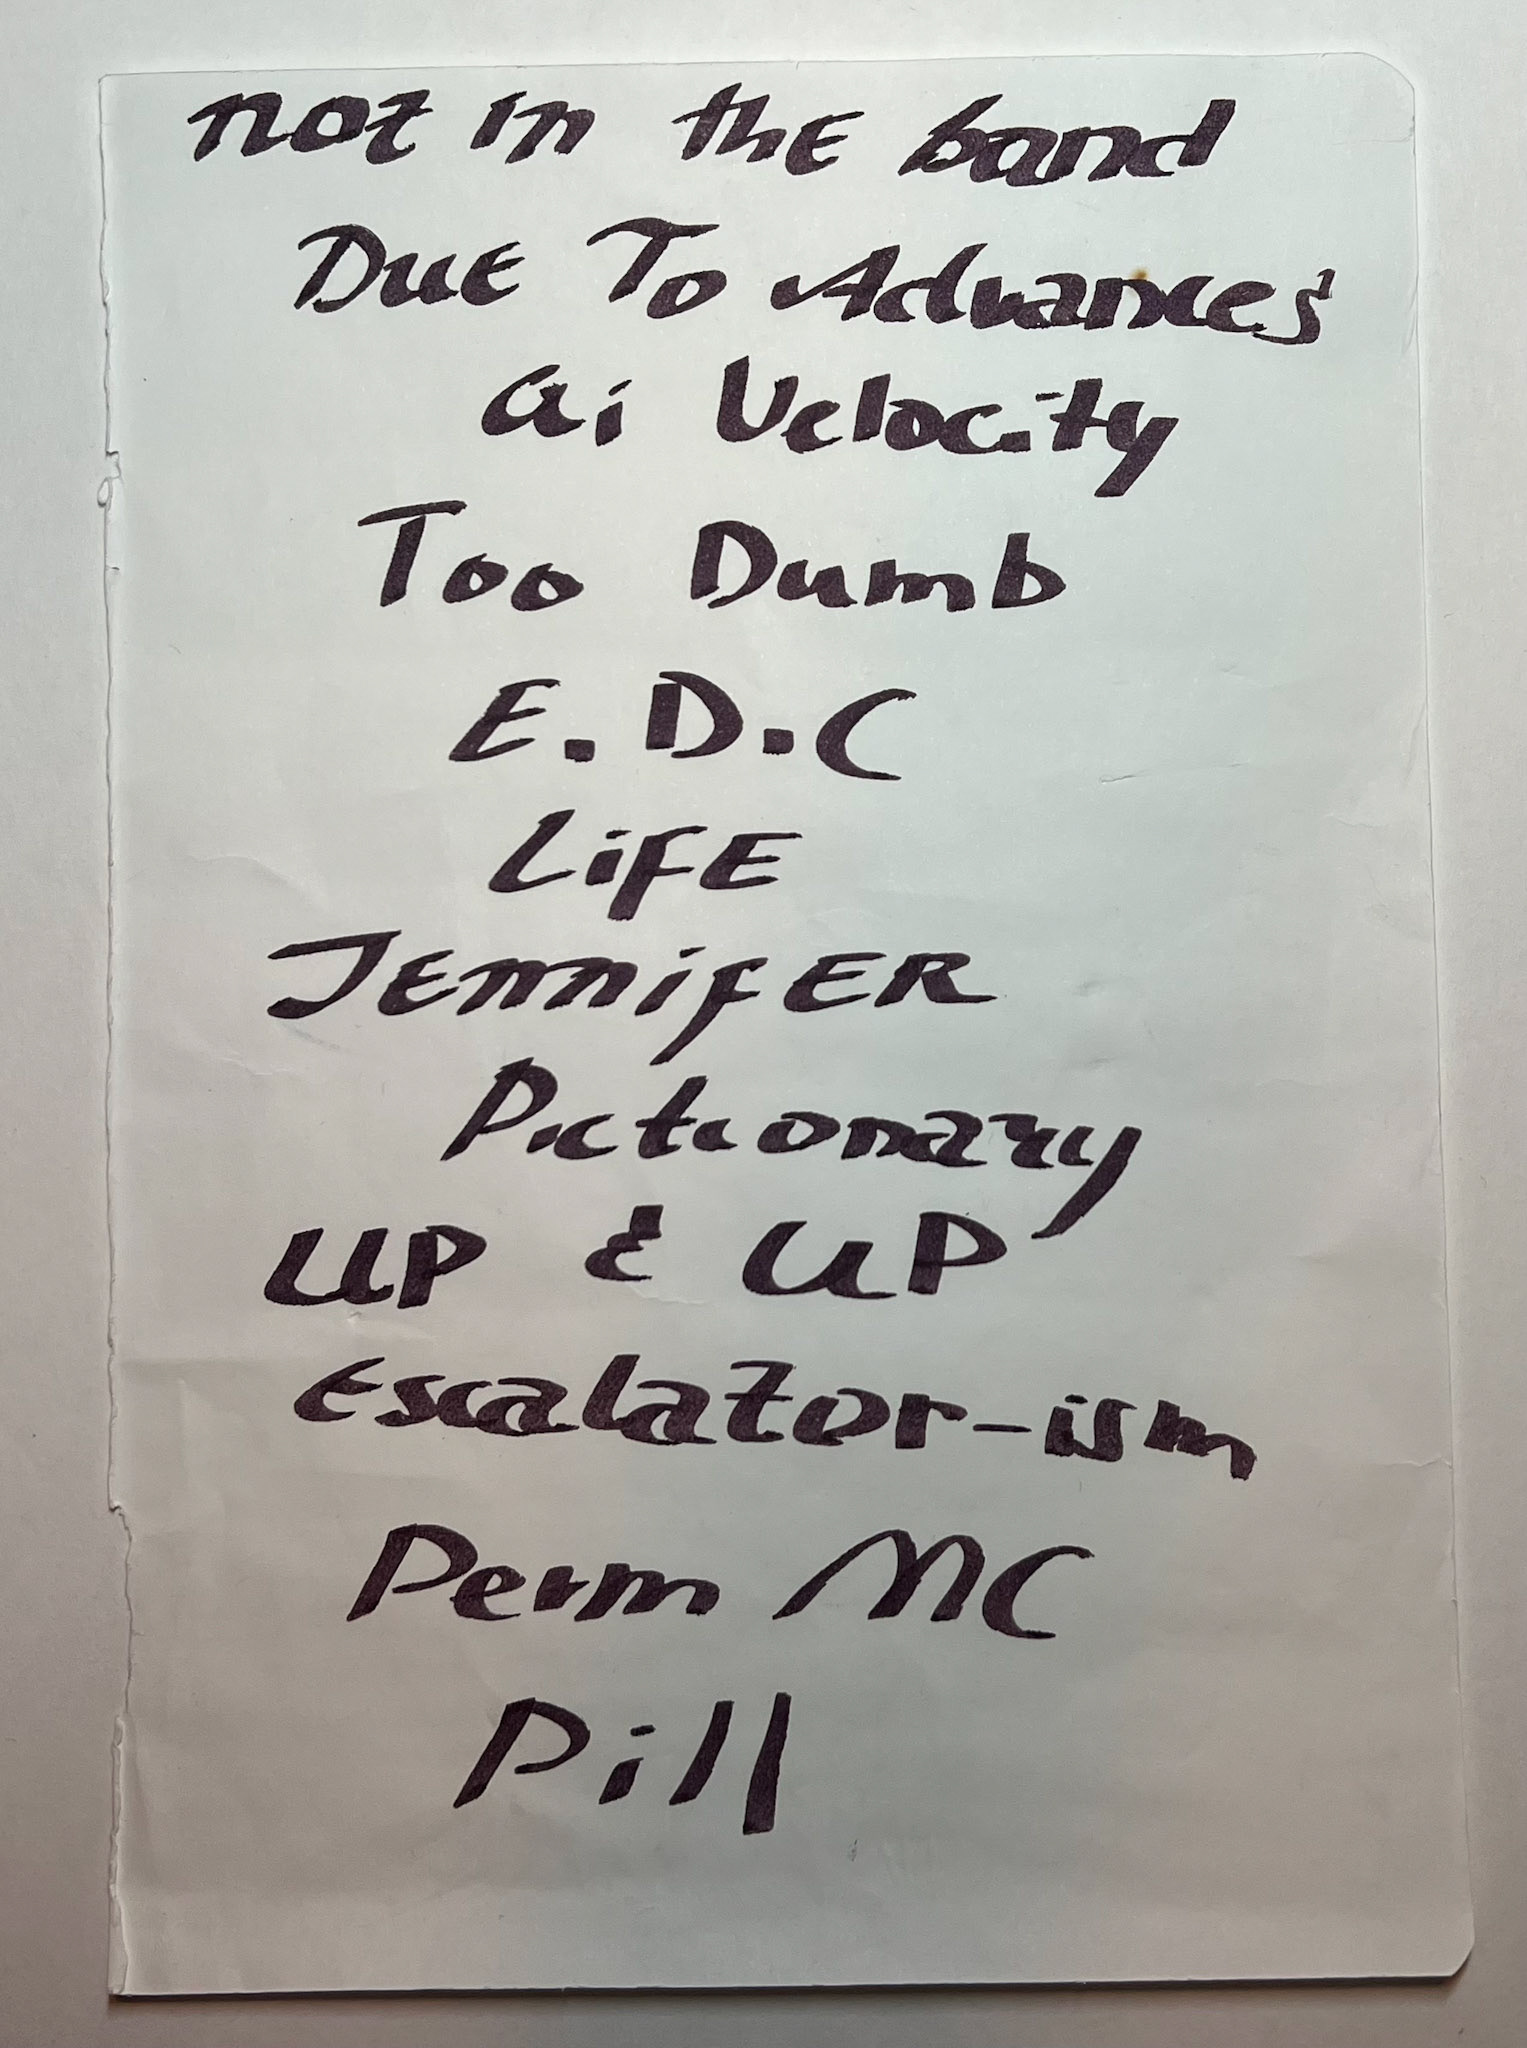 not in the band
Due To Advances
ai Velocity
Too Dumb
E.D.C
LifE
JEnnifER
Pictionary
UP & UP
Escalator-ism
Perm MC
Pill